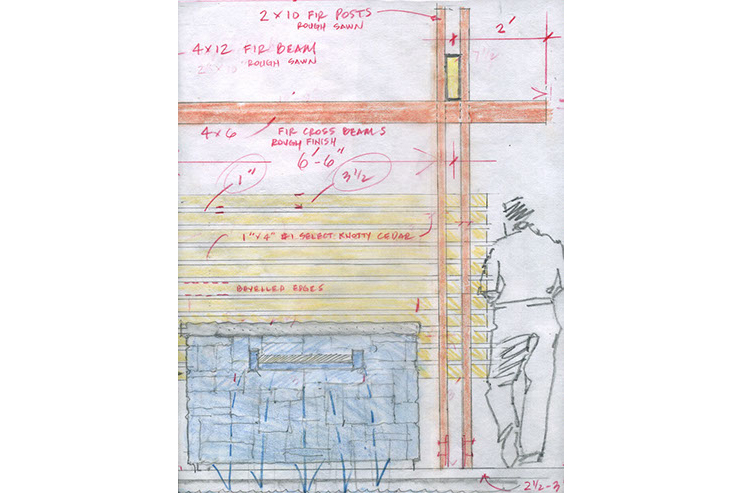 2 x 10 FIR POSTS
ROUGH SAWN
2'
4 x 12 FIR BEAM
ROUGH SAWN
7 1/2
4 x 6 FIR CROSS BEAMS
ROUGH FINISH
6'-6"
1"
3 1/2
1" x 4" #1 SELECT KNOTTY CEDAR
BEVELLED EDGES
2 1/2-3